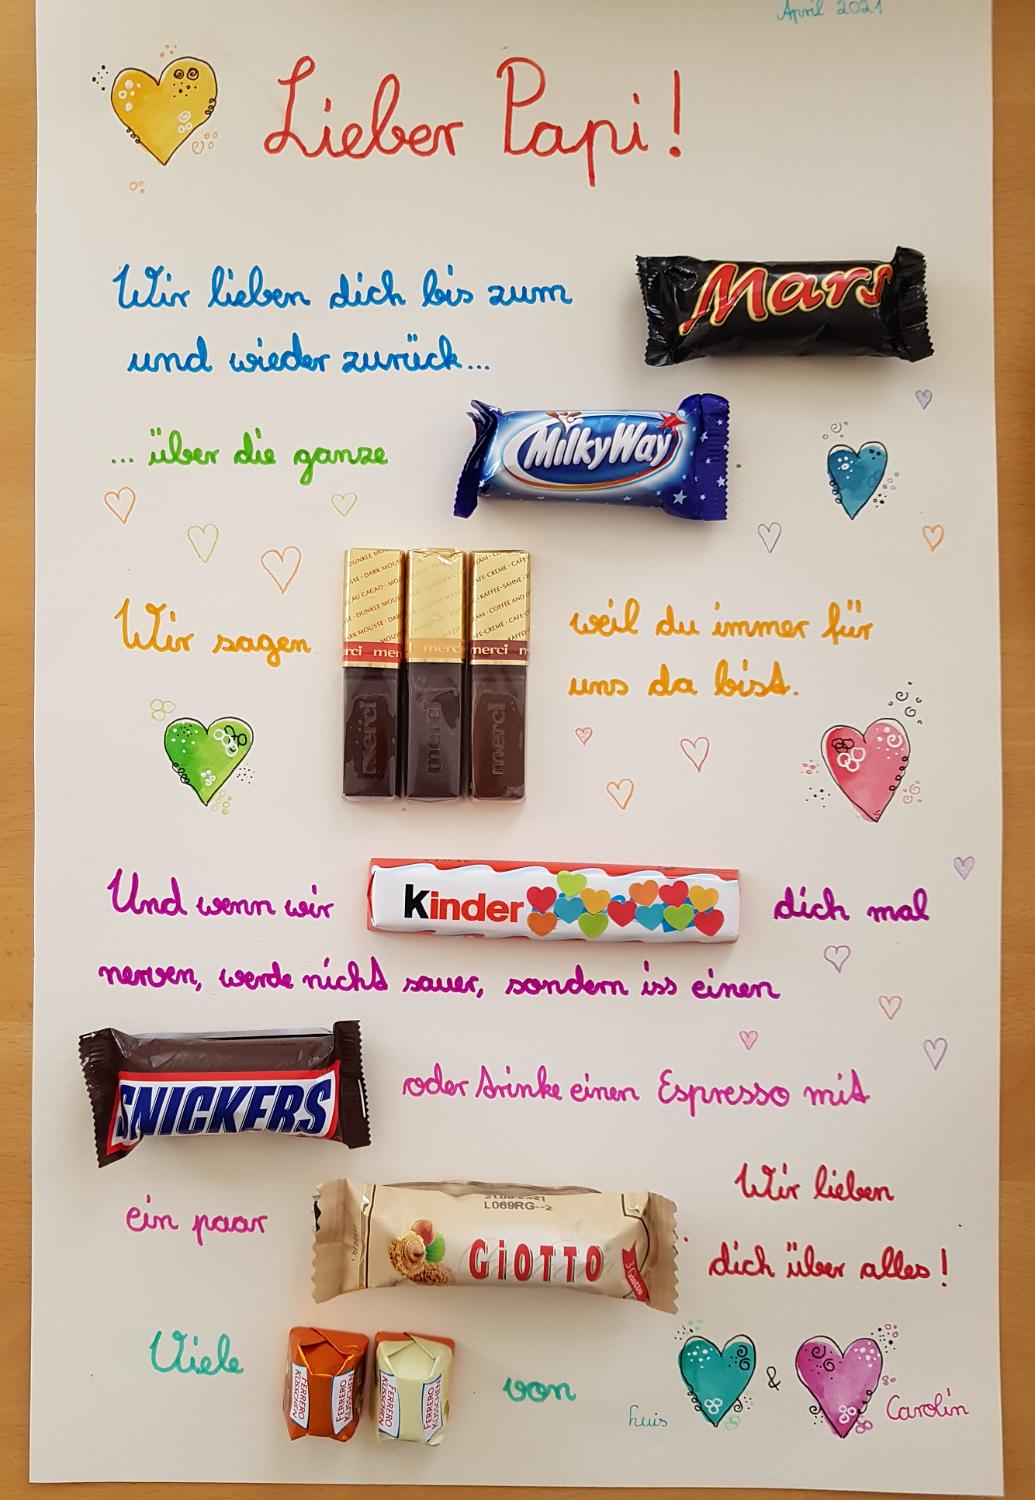 April 2021
Lieber Papi!
Wir lieben dich bis zum Mars
und wieder zurück...
... über die ganze MilkyWay
Wir sagen merci merci merci weil du immer für
uns da bist.
Und wenn wir Kinder dich mal
nerven, werde nicht sauer, sondern iss einen
SNICKERS oder trinke einen Espresso mit
ein paar GiOTTO
L069RG--2
Wir lieben
dich über alles!
Viele FERRERO KÜSSCHEN FERRERO KÜSSCHEN von
& Carolin